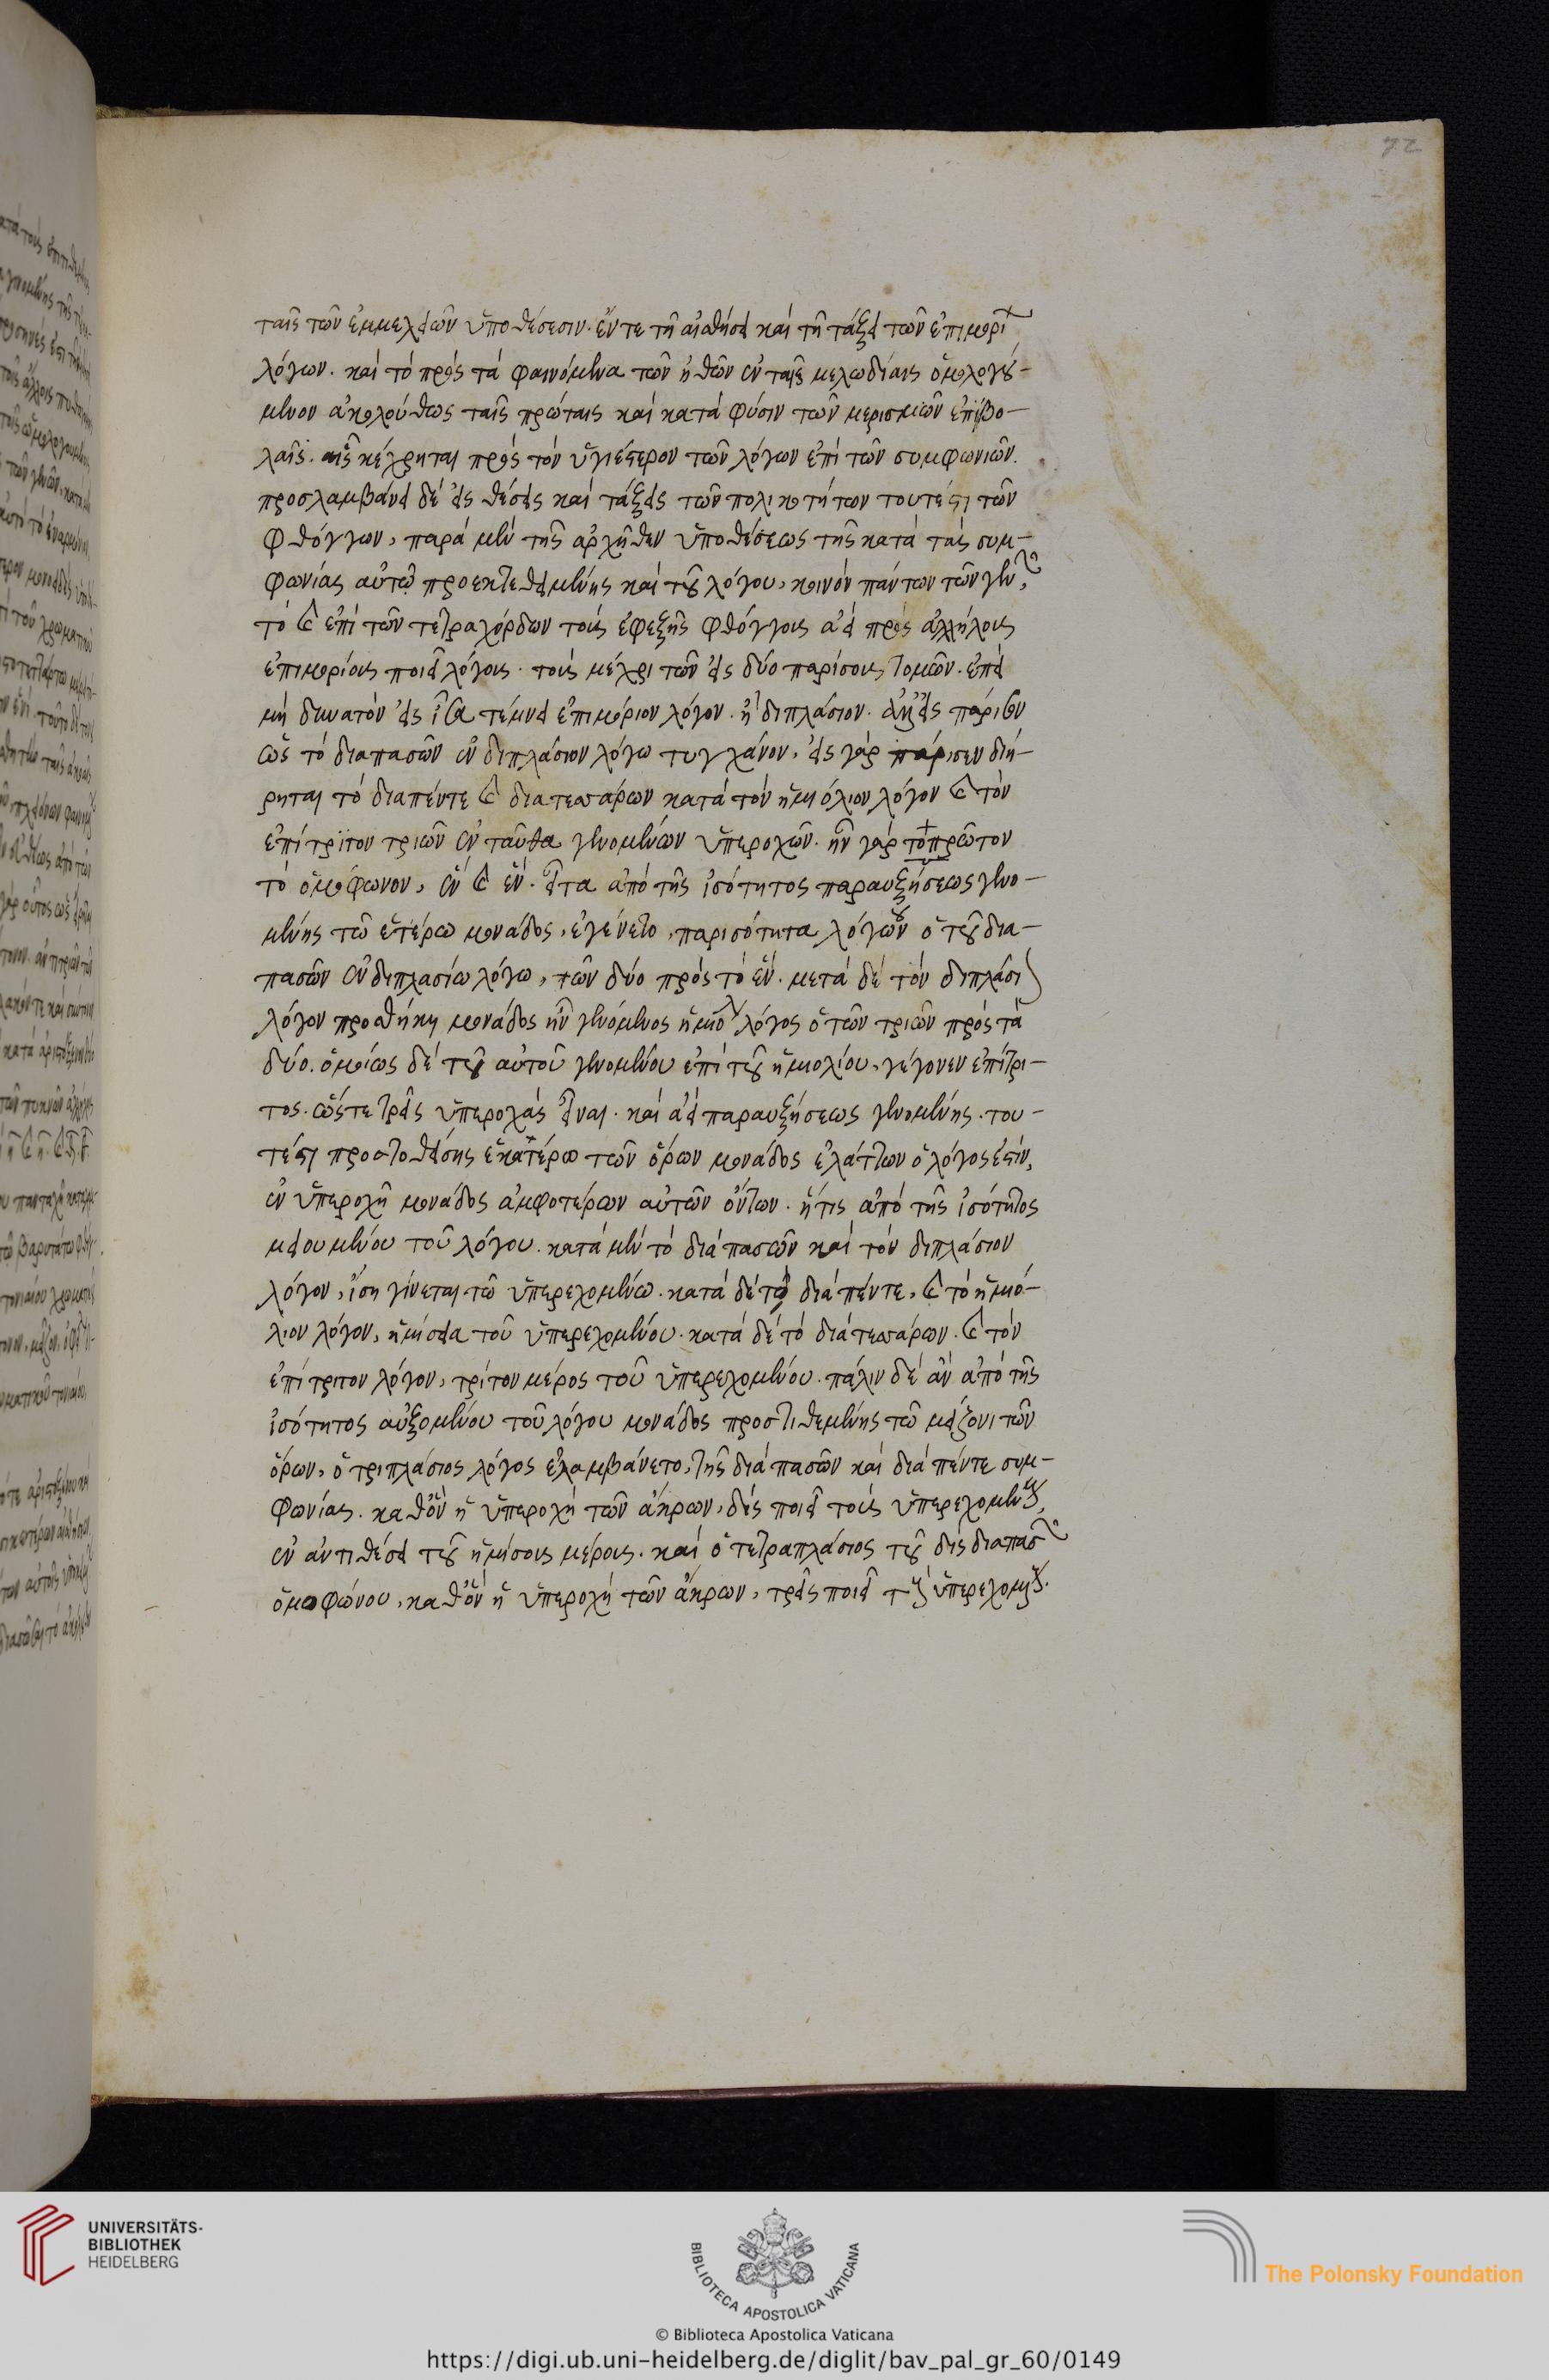 72
ταῖς τῶν ἐμμελειῶν ὑποθέσεσιν. ἔν τε τῇ αἰσθήσει καὶ τῇ τάξει τῶν ἐπιμορί
λόγων. καὶ τὸ πρὸς τὰ φαινόμενα τῶν ἠθῶν ἐν ταῖς μελωδίαις ὁμολογού-
μενον ἀκολούθως ταῖς πρώταις καὶ κατὰ φύσιν τῶν μερισμῶν ἐπιβο-
λαῖς. αἷς κέχρηται πρὸς τὸν ὑγιέστερον τῶν λόγων ἐπὶ τῶν συμφωνιῶν.
προσλαμβάνει δὲ εἰς θέσεις καὶ τάξεις τῶν τουτέστι τῶν
φθόγγων, παρὰ μὲν τῆς ἀρχῆθεν ὑποθέσεως τῆς κατὰ τὰς συμ-
φωνίας αὐτῷ προεκτεθειμένης καὶ τοῦ λόγου, κοινὸν πάντων τῶν γενῶν,
τὸ καὶ ἐπὶ τῶν τετραχόρδων τοὺς ἐφεξῆς φθόγγους ἀεὶ πρὸς ἀλλήλους
ἐπιμορίους ποιεῖ λόγους. τοὺς μέχρι τῶν εἰς δύο παρίσους τομῶν. ἐπεὶ
μὴ δυνατὸν εἰς ἴσα τέμνει ἐπιμόριον λόγον. ἢ διπλάσιον. πάρισον
ὡς τὸ διαπασῶν ἐν διπλάσιον λόγω τυγχάνον, εἰς γὰρ πάρισεν διή-
ρηται τὸ διαπέντε καὶ διατεσσάρων κατὰ τὸν ἡμιόλιον λόγον καὶ τὸν
ἐπίτριτον τριῶν ἐνταῦθα γενομένων ὑπεροχῶν. ἦν γὰρ τὸ πρῶτον
τὸ ὁμόφωνον, ἓν καὶ ἕν. εἶτα ἀπὸ τῆς ἰσότητος παραυξήσεως γενο-
μένης τῶ ἑτέρω μονάδος, ἐγένετο, παρισότητα λόγων ὁ τοῦ δια-
πασῶν ἐν διπλασίω λόγω, τῶν δύο πρὸς τὸ ἕν. μετὰ δὲ τὸν διπλάσι
λόγον προσθήκη μονάδος ἦν γενόμενος ἡμιόλ λόγος ὁ τῶν τριῶν πρὸς τὰ
δύο. ὁμοίως δὲ τοῦ αὐτοῦ γενομένου ἐπὶ τοῦ ἡμιολίου, γέγονεν ἐπίτρι-
τος. ὥστε τρεῖς ὑπεροχὰς εἶναι. καὶ ἀεὶ παραυξήσεως γενομένης. του-
τέστι προστεθείσης ἑκατέρω τῶν ὅρων μονάδος ἐλάττων ὁ λόγος ἐστίν,
ἐν ὑπεροχῇ μονάδος ἀμφοτέρων αὐτῶν ὄντων. ἥτις ἀπὸ τῆς ἰσότητος
μειουμένου τοῦ λόγου. κατὰ μὲν τὸ διὰ πασῶν καὶ τὸν διπλάσιον
λόγον, ἴση γίνεται τῶ ὑπερεχομένω. κατὰ δὲ τὸ διὰ πέντε, καὶ τὸ ἡμιό-
λιον λόγον, ἡμίσεια τοῦ ὑπερεχομένου. κατὰ δὲ τὸ διὰ τεσσάρων. καὶ τὸν
ἐπίτριτον λόγον, τρίτον μέρος τοῦ ὑπερεχομένου. πάλιν δὲ ἂν ἀπὸ τῆς
ἰσότητος αὐξομένου τοῦ λόγου μονάδος προστιθεμένης τῶ μείζονι τῶν
ὅρων, ὁ τριπλάσιος λόγος ἐλαμβάνετο, τῆς διὰ πασῶν καὶ διὰ πέντε συμ-
φωνίας. καθ' ὃν ἡ ὑπεροχὴ τῶν ἄκρων, δὶς ποιεῖ τοὺς ὑπερεχομένους,
ἐν ἀντιθέσει τοῦ ἡμίσους μέρους. καὶ ὁ τετραπλάσιος τοῦ δὶς διαπασῶν
ὁμοφώνου, καθ' ὃν ἡ ὑπεροχὴ τῶν ἄκρων, τρεῖς ποιεῖ τοὺς ὑπερεχομένους.
UNIVERSITÄTS-
BIBLIOTHEK
HEIDELBERG
BIBLIOTECA APOSTOLICA VATICANA
© Biblioteca Apostolica Vaticana
The Polonsky Foundation
https://digi.ub.uni-heidelberg.de/diglit/bav_pal_gr_60/0149